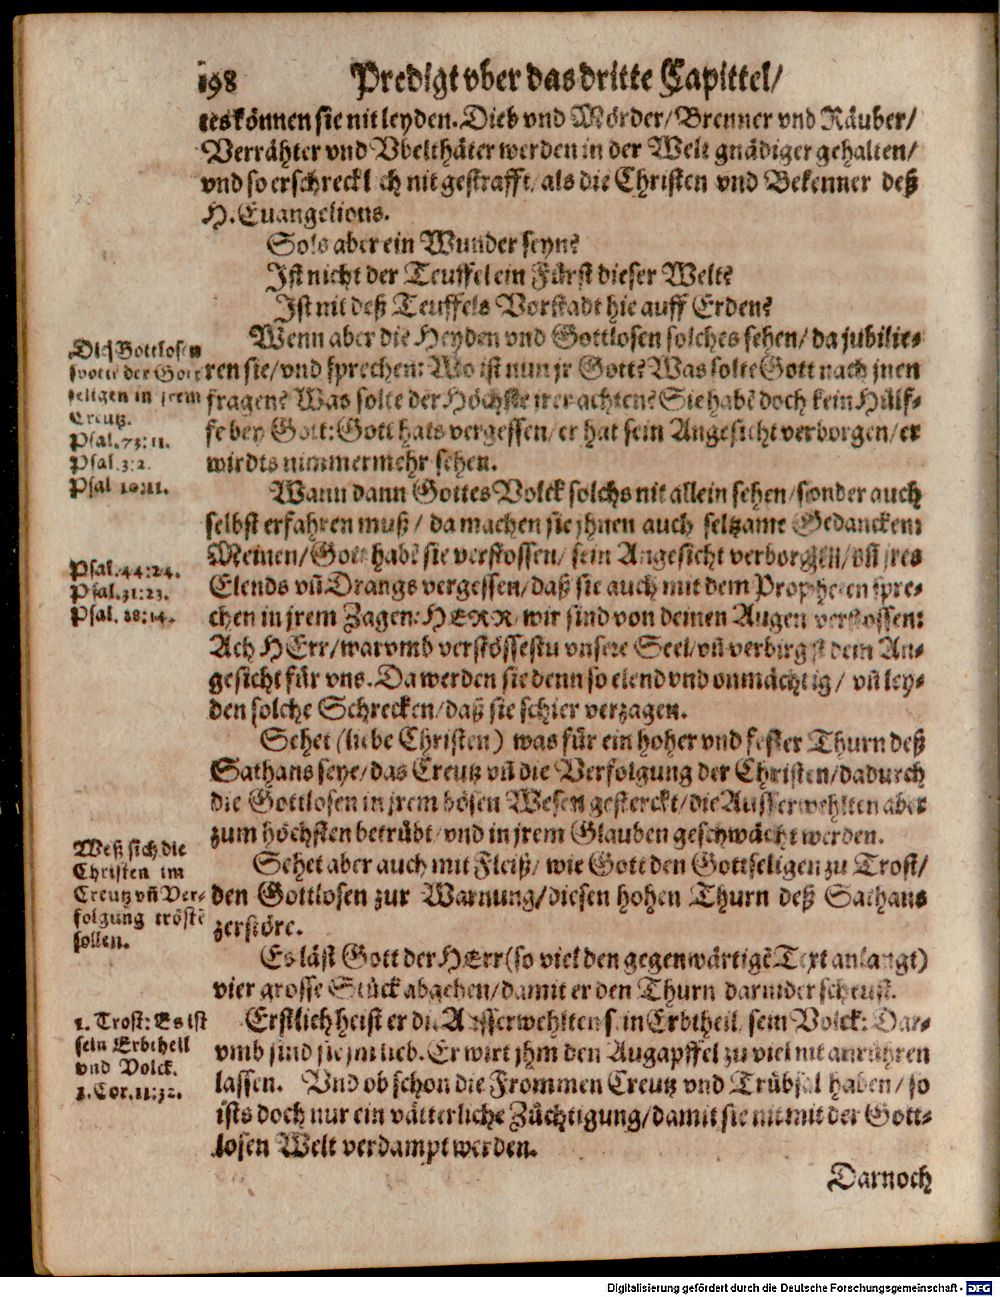 198 Predigt vber das dritte Capittel/
tes können sie nit leyden. Dieb vnd Mörder/ Brenner vnd Räuber/
Verrähter vnd Vbelthäter werden in der Welt gnädiger gehalten/
vnd so erschrecklich nit gestrafft/ als die Christen vnd Bekenner deß
H. Euangelions.
Sols aber ein Wunder seyn?
Ist nicht der Teuffel ein Fürst dieser Welt?
Ist nit deß Teuffels Vorstadt hie auff Erden?
Wenn aber die Heyden vnd Gottlosen solches sehen/ da jubilie-
ren sie/ vnd sprechen: Wo ist nun jr Gott? Was solte Gott nach jnen
fragen? Was solte der Höchste irer achten? Sie habē doch kein Hülf-
fe bey Gott: Gott hats vergessen/ er hat sein Angesicht verborgen/ er
wirdts nimmermehr sehen.
Die Gottlosen
spotten der Gott
seligen in jrem
Creutz.
Psal. 73:11.
Psal. 3:2.
Psal 10:11.
Wann dann Gottes Volck solchs nit allein sehen/ sonder auch
selbst erfahren muß/ da machen sie jhnen auch seltzame Gedancken:
Meinen/ Gott habe sie verstossen/ sein Angesicht verborgen/ vñ jres
Elends vñ Drangs vergessen/ daß sie auch mit dem Propheten spre-
chen in jrem Zagen: HERR wir sind von deinen Augen verstossen:
Ach HErr/ warvmb verstössestu vnsere Seel/ vñ verbirgst dein An-
gesicht für vns. Da werden sie denn so elend vnd onmächtig/ vñ ley-
den solche Schrecken/ daß sie schier verzagen.
Psal. 44:24.
Psal. 31:23.
Psal. 88:14.
Sehet (liebe Christen) was für ein hoher vnd fester Thurn deß
Sathans seye/ das Creutz vñ die Verfolgung der Christen/ dadurch
die Gottlosen in jrem bösen Wesen gesterckt/ die Ausserwehlten aber
zum höchsten betrübt/ vnd in jrem Glauben geschwächt werden.
Sehet aber auch mit Fleiß/ wie Gott den Gottseligen zu Trost/
den Gottlosen zur Warnung/ diesen hohen Thurn deß Sathans
zerstöre.
Weß sich die
Christen im
Creutz vñ Ver-
folgung tröstē
sollen.
Es läst Gott der HErr (so viel den gegenwärtigē Text anlangt)
vier grosse Stück abgehen/ damit er den Thurn darnider scheust.
Erstlich heist er die Ausserwehlten sein Erbtheil/ sein Volck: Dar-
vmb sind sie jm lieb. Er wirt jhm den Augapffel zu viel nit anrühren
lassen. Vnd ob schon die Frommen Creutz vnd Trübsal haben/ so
ists doch nur ein vätterliche Züchtigung/ damit sie nit mit der Gott-
losen Welt verdampt werden.
1. Trost: Es ist
sein Erbtheil
vnd Volck.
1. Cor. 11:32.
Darnoch
Digitalisierung gefördert durch die Deutsche Forschungsgemeinschaft - DFG